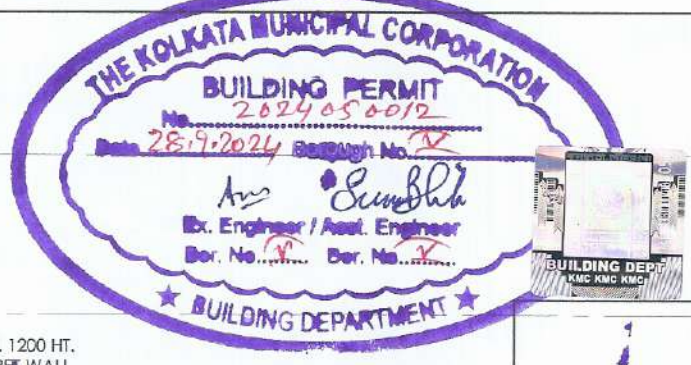 THE KOLKATA MUNICIPAL CORPORATION
BUILDING PERMIT
No. 2024050012
Date 28.9.2024 Borough No. V
Ex. Engineer / Asst. Engineer
Bor. No. V Bor. No. V
★ BUILDING DEPARTMENT ★
BUILDING DEPT
KMC KMC KMC
. 1200 HT.
WALL